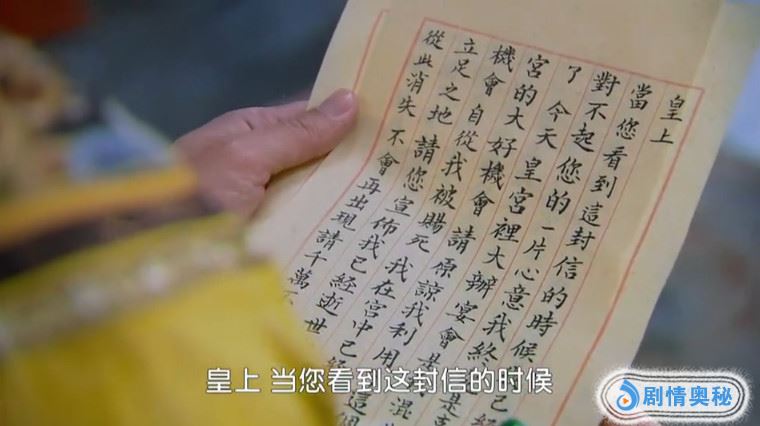 皇上
當您看到這封信的時候
對不起您的一片心意我終
了 今天 皇宮裡大辦宴會是
宮的大好機會 請原諒我利用混
機會 自從我被賜死 我在宮中已
立足之地 請您宣佈我已經逝世
從此消失 不會再出現請千萬不
皇上 当您看到这封信的时候
剧情奥秘